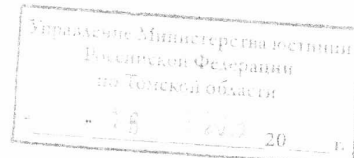 Управление Министерства юстиции
Российской Федерации
по Томской области
" 20 г.